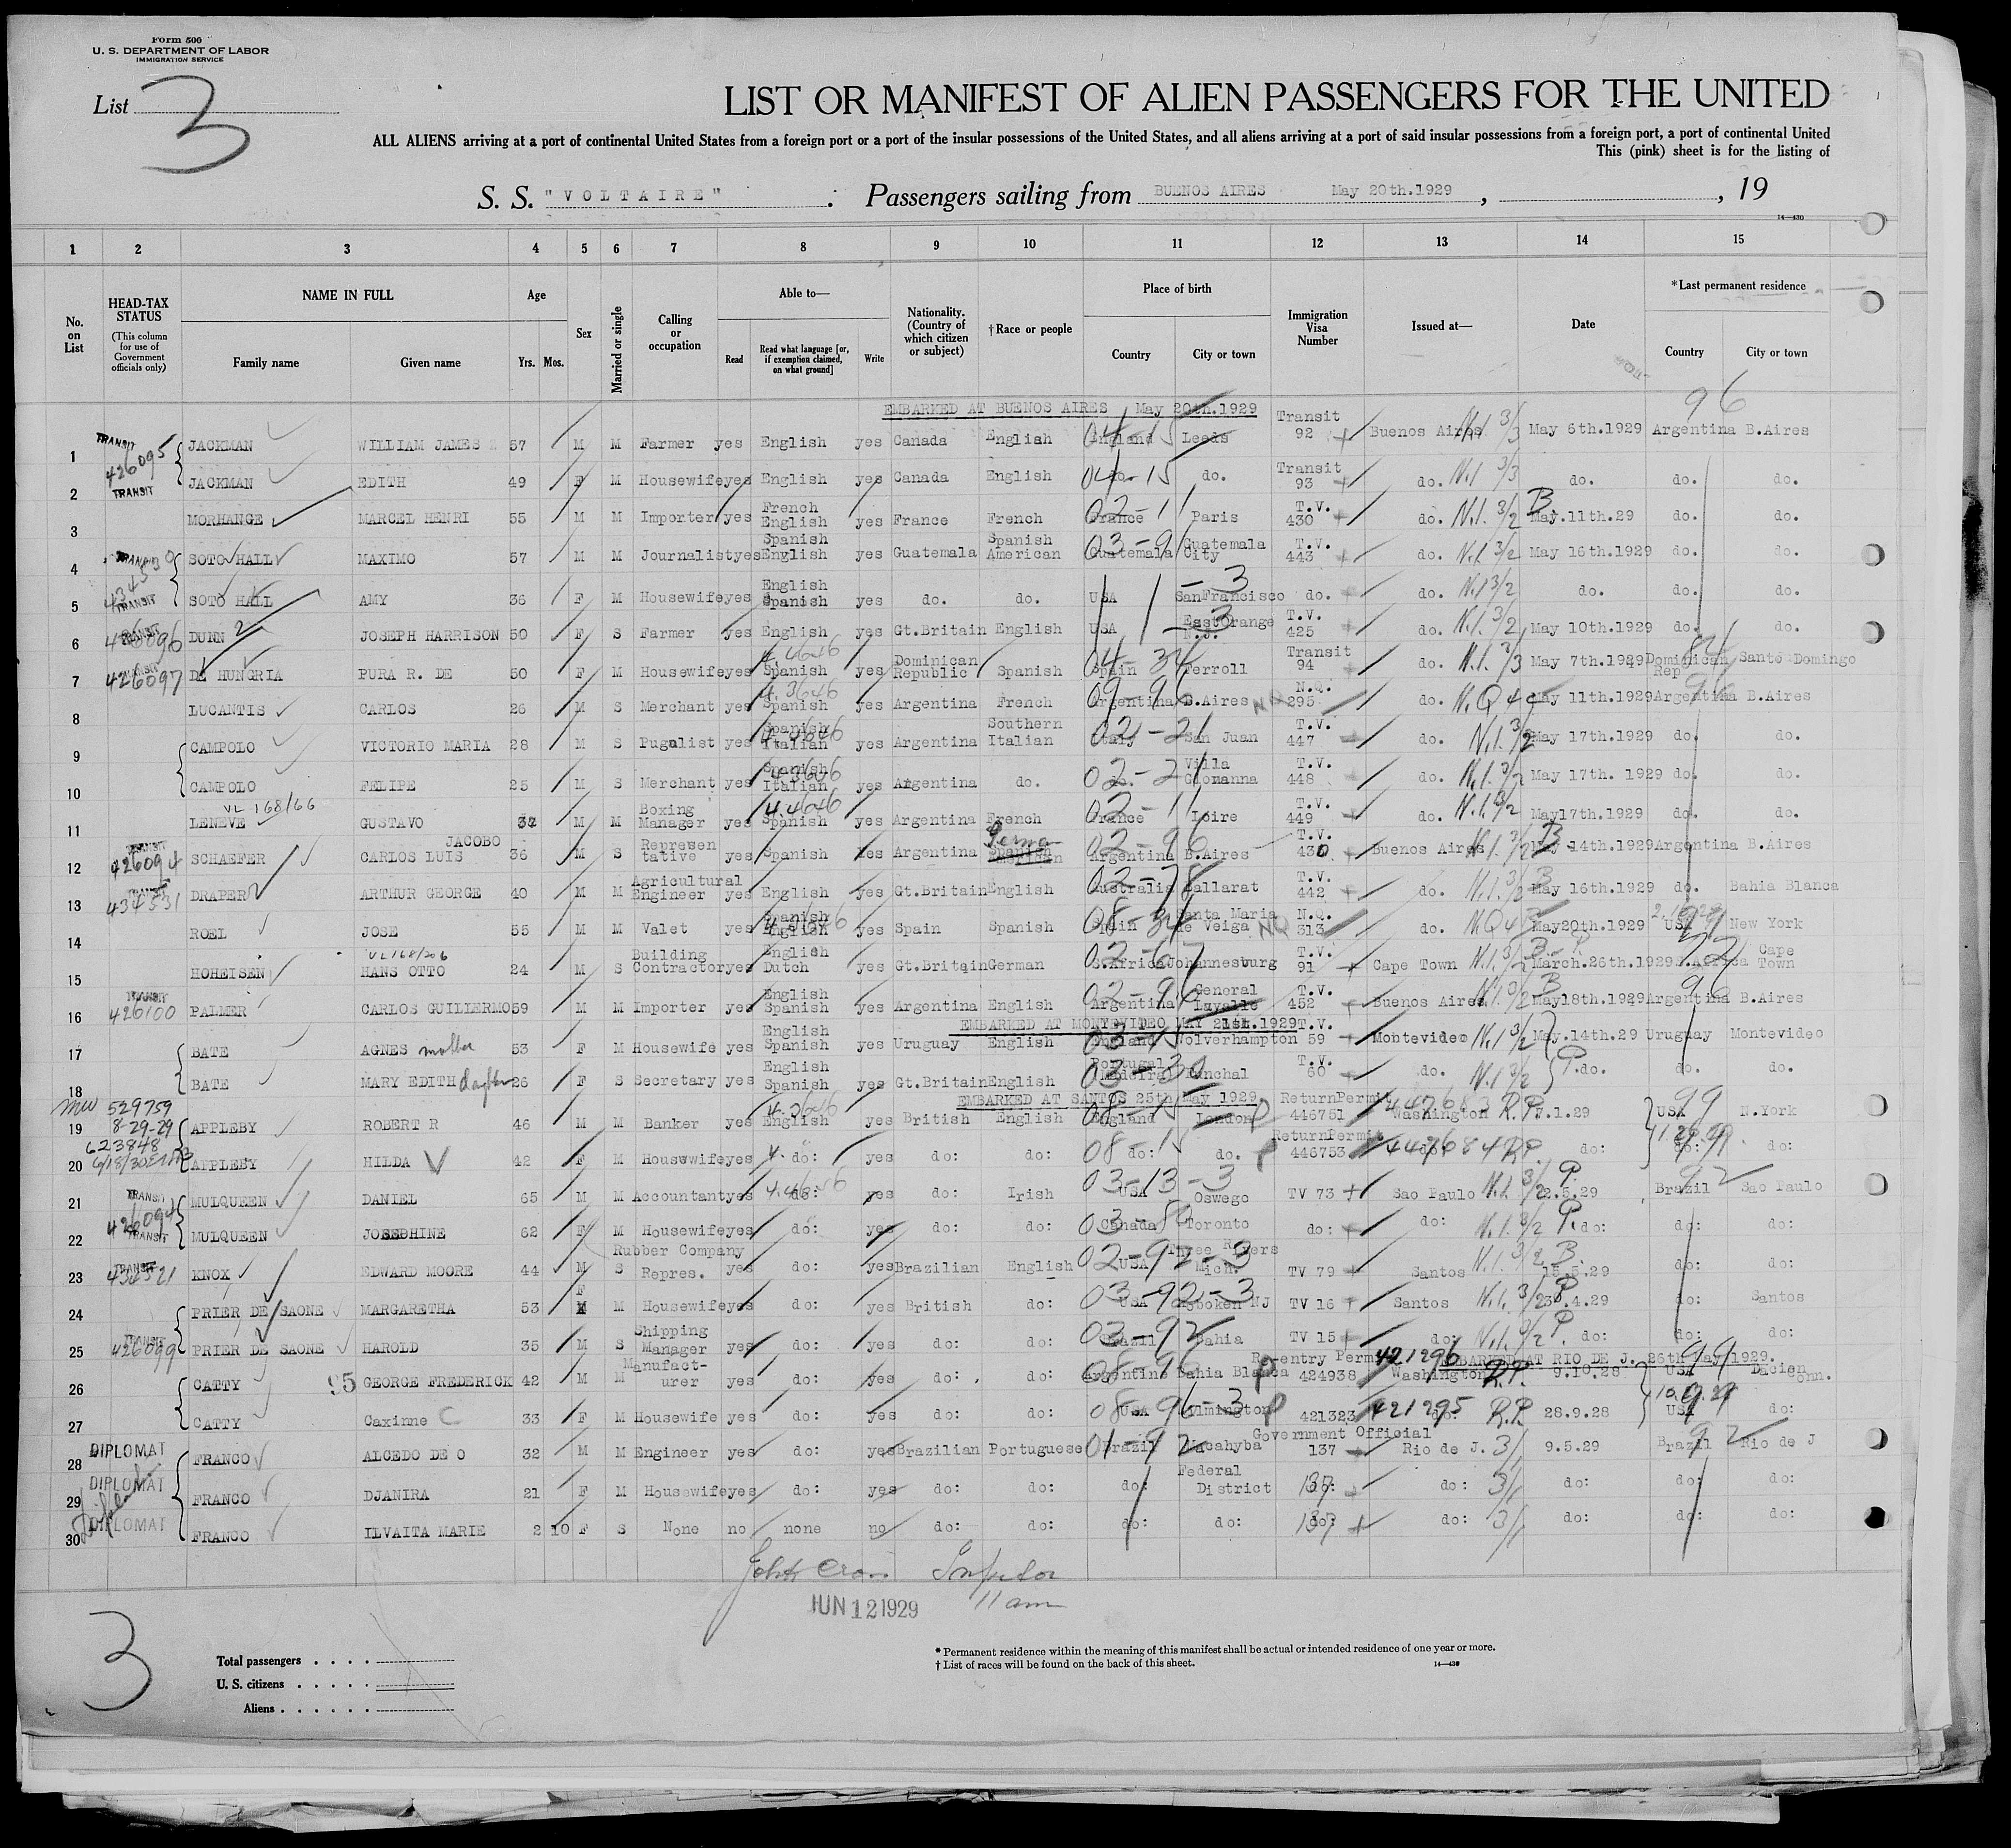 Form 500
U. S. DEPARTMENT OF LABOR
IMMIGRATION SERVICE
List 3
LIST OR MANIFEST OF ALIEN PASSENGERS FOR THE UNITED
ALL ALIENS arriving at a port of continental United States from a foreign port or a port of the insular possessions of the United States, and all aliens arriving at a port of said insular possessions from a foreign port, a port of continental United
This (pink) sheet is for the listing of
S. S. "VOLTAIRE" : Passengers sailing from BUENOS AIRES May 20th.1929 , , 19
14—430
1 2 3 4 5 6 7 8 9 10 11 12 13 14 15
No. on List
HEAD-TAX STATUS (This column for use of Government officials only)
NAME IN FULL Family name Given name
Age Yrs. Mos.
Sex
Married or single
Calling or occupation
Able to— Read Read what language [or, if exemption claimed, on what ground] Write
Nationality. (Country of which citizen or subject)
†Race or people
Place of birth Country City or town
Immigration Visa Number
Issued at—
Date
*Last permanent residence Country City or town
EMBARKED AT BUENOS AIRES May 20th.1929 96
1 TRANSIT 426095 JACKMAN WILLIAM JAMES 57 M M Farmer yes English yes Canada English England Leeds 04-15 Transit 92 Buenos Aires N.I. 3/3 May 6th.1929 Argentina B.Aires
2 TRANSIT JACKMAN EDITH 49 F M Housewife yes English yes Canada English do. do. 04-15 Transit 93 do. N.I. 3/3 do. do. do.
3 MORHANGE MARCEL HENRI 55 M M Importer yes French English yes France French France Paris 02-11 T.V. 430 do. N.I. 3/2 B May.11th.29 do. do.
4 TRANSIT 434530 SOTO HALL MAXIMO 57 M M Journalist yes Spanish English yes Guatemala Spanish American Guatemala Guatemala City 03-9 T.V. 443 do. N.I. 3/2 May 16th.1929 do. do.
5 TRANSIT SOTO HALL AMY 36 F M Housewife yes English Spanish yes do. do. USA SanFrancisco -3 do. do. N.I 3/2 do. do. do.
6 TRANSIT DUNN JOSEPH HARRISON 50 F S Farmer yes English yes Gt.Britain English USA EastOrange N.J. 3 T.V. 425 do. N.I. 3/2 May 10th.1929 do. do.
7 426097 DE HUNGRIA PURA R. DE 50 F M Housewife yes Spanish yes Dominican Republic Spanish Spain Ferroll 04-34 Transit 94 do. N.I. 3/3 May 7th.1929 Dominican Rep Santo Domingo
8 LUCANTIS CARLOS 26 M S Merchant yes Spanish yes Argentina French Argentina B.Aires 09-96 N.Q. 295 do. N.Q 4 May 11th.1929 Argentina B.Aires
9 CAMPOLO VICTORIO MARIA 28 M S Pugulist yes Spanish Italian yes Argentina Southern Italian Italy San Juan 02-21 T.V. 447 do. N.I. 3/2 May 17th.1929 do. do.
10 CAMPOLO FELIPE 25 M S Merchant yes Spanish Italian yes Argentina do. do. Villa 02-21 T.V. 448 do. N.I. 3/2 May 17th. 1929 do. do.
11 VL 168/66 LENEVE GUSTAVO M M Boxing Manager yes Spanish yes Argentina French France Loire 02-11 T.V. 449 do. N.I. 3/2 May17th.1929 do. do.
12 TRANSIT 426094 SCHAEFER CARLOS LUIS JACOBO 36 M S Represen tative yes Spanish Yes Argentina Argentina B.Aires 02-96 T.V. 430 Buenos Aires N.I. 3/2 B May 14th.1929 Argentina B.Aires
13 434531 DRAPER ARTHUR GEORGE 40 M M Agricultural Engineer yes English yes Gt.Britain English Australia Ballarat 02-78 T.V. 442 do. N.I. 3/2 B May 16th.1929 do. Bahia Blanca
14 ROEL JOSE 55 M M Valet yes Spanish English yes Spain Spanish Spain Santa Maria de Veiga 08-34 N.Q. 313 do. N.Q 4 May20th.1929 USA New York
15 HOHEISEN HANS OTTO 24 M S Building Contractor yes English Dutch yes Gt.Britain German S.Africa Johannesburg 02-67 T.V. 91 Cape Town N.I. 3/2 March.26th.1929 S.Africa Cape Town
16 TRANSIT 426100 PALMER CARLOS GUILLERMO 59 M M Importer yes English Spanish yes Argentina English Argentina General Lavalle 02-96 T.V. 452 Buenos Aires N.I 3/2 B May18th.1929 Argentina B.Aires
EMBARKED AT MONTEVIDEO MAY 21st.1929
17 BATE AGNES mother 53 F M Housewife yes English Spanish yes Uruguay English England Wolverhampton T.V. 59 Montevideo N.I 3/2 May.14th.29 Uruguay Montevideo
18 BATE MARY EDITH daughter 26 F S Secretary yes English Spanish yes Gt.Britain English Portugal Madeira Funchal 03-30 T.V. 60 do. N.I 3/2 P. do. do. do.
EMBARKED AT SANTOS 25th May 1929
19 529759 8-29-29 APPLEBY ROBERT R 46 M M Banker yes English yes British English England London 08-15 P ReturnPermit 446751 Washington R.P. 7.1.29 USA N.York
20 623848 APPLEBY HILDA 42 F M Housewife yes do: yes do: do: do: do. 08-15 P ReturnPermit 446753 do: R.P. do: do: do:
21 TRANSIT 426094 MULQUEEN DANIEL 65 M M Accountant yes do: yes do: Irish USA Oswego 03-13-3 TV 73 Sao Paulo N.I. 3/2 P. 2.5.29 Brazil Sao Paulo
22 TRANSIT MULQUEEN JOSEPHINE 62 F M Housewife yes do: yes do: do: Canada Toronto do: do: N.I. 3/2 P. do: do: do:
23 TRANSIT 434521 KNOX EDWARD MOORE 44 M S Rubber Company Repres. yes do: yes Brazilian English USA Three Rivers Mich. 02-92-3 TV 79 Santos N.I. 3/2 B. 15.5.29 do: do:
24 PRIER DE SAONE MARGARETHA 53 F M Housewife yes do: yes British do: USA Hoboken NJ 03-92-3 TV 16 Santos N.I. 3/2 P. do: Santos
25 TRANSIT 426099 PRIER DE SAONE HAROLD 35 M S Shipping Manager yes do: yes do: do: Brazil Bahia 03-92 TV 15 do: N.I. 3/2 P. do: do: do:
EMBARKED AT RIO DE J. 26th May 1929.
26 CATTY 95 GEORGE FREDERICK 42 M M Manufact- urer yes do: yes do: do: Argentine Bahia Blanca 08-96 P Re-entry Permit 424938 421296 Washington R.P. 9.10.28 USA
27 CATTY Caxinne C 33 F M Housewife yes do: yes do: do: USA Wilmington 08-96-3 P 421323 421295 do: R.P. 28.9.28 USA do:
28 DIPLOMAT FRANCO ALCEDO DE O 32 M M Engineer yes do: yes Brazilian Portuguese Brazil Macahyba 01-92 Government Official 137 Rio de J. 3/1 9.5.29 Brazil Rio de J
29 DIPLOMAT FRANCO DJANIRA 21 F M Housewife yes do: yes do: do: do: Federal District 137 do: 3/1 do: do: do:
30 DIPLOMAT FRANCO ILVAITA MARIE 2 10 F S None no none no do: do: do: do: 137 do: 3/1 do: do: do:
John
JUN 12 1929
11 am
3
Total passengers . . . .
U. S. citizens . . . . .
Aliens . . . . . .
* Permanent residence within the meaning of this manifest shall be actual or intended residence of one year or more.
† List of races will be found on the back of this sheet.
14—430